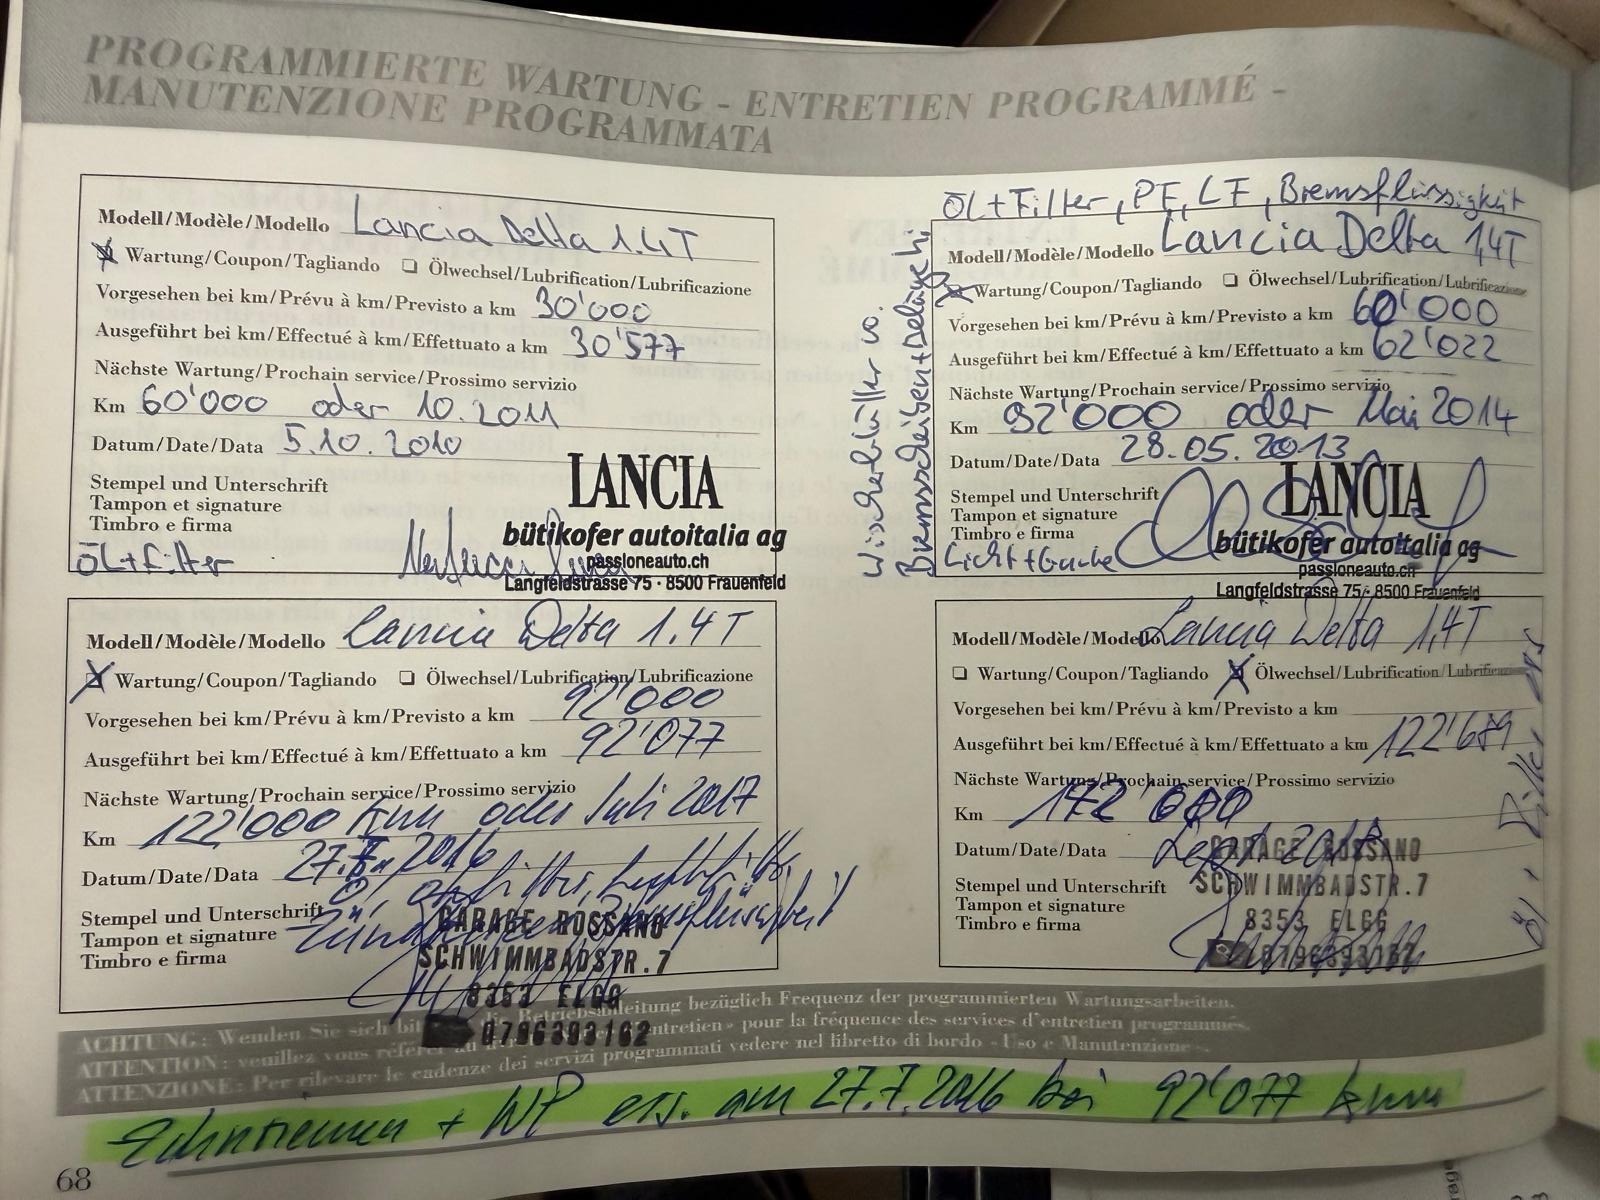 PROGRAMMIERTE WARTUNG - ENTRETIEN PROGRAMMÉ -
MANUTENZIONE PROGRAMMATA
Modell/Modèle/Modello Lancia Delta 1.4T
Wartung/Coupon/Tagliando Ölwechsel/Lubrification/Lubrificazione
Vorgesehen bei km/Prévu à km/Previsto a km 30'000
Ausgeführt bei km/Effectué à km/Effettuato a km 30'577
Nächste Wartung/Prochain service/Prossimo servizio
Km 60'000 oder 10.2011
Datum/Date/Data 5.10.2010
Stempel und Unterschrift
Tampon et signature
Timbro e firma
ÖL+Filter
LANCIA
bütikofer autoitalia ag
passioneauto.ch
Langfeldstrasse 75 · 8500 Frauenfeld
ÖL+Filter, PF, LF, Bremsflüssigkeit
Wischerblätter vo.
Bremsscheiben+Beläge hi
Modell/Modèle/Modello Lancia Delta 1,4T
Wartung/Coupon/Tagliando Ölwechsel/Lubrification/Lubrificazione
Vorgesehen bei km/Prévu à km/Previsto a km 60'000
Ausgeführt bei km/Effectué à km/Effettuato a km 62'022
Nächste Wartung/Prochain service/Prossimo servizio
Km 92'000 oder Mai 2014
Datum/Date/Data 28.05.2013
Stempel und Unterschrift
Tampon et signature
Timbro e firma
LANCIA
bütikofer autoitalia ag
passioneauto.ch
Langfeldstrasse 75 · 8500 Frauenfeld
Modell/Modèle/Modello Lancia Delta 1.4T
Wartung/Coupon/Tagliando Ölwechsel/Lubrification/Lubrificazione
Vorgesehen bei km/Prévu à km/Previsto a km 92'000
Ausgeführt bei km/Effectué à km/Effettuato a km 92'077
Nächste Wartung/Prochain service/Prossimo servizio
Km 122'000 km oder Juli 2017
Datum/Date/Data 27.7.2016
Stempel und Unterschrift
Tampon et signature
Timbro e firma
GARAGE ROSSANO
SCHWIMMBADSTR.7
8353 ELGG
0796393162
Modell/Modèle/Modello Lancia Delta 1,4T
Wartung/Coupon/Tagliando Ölwechsel/Lubrification/Lubrificazione
Vorgesehen bei km/Prévu à km/Previsto a km
Ausgeführt bei km/Effectué à km/Effettuato a km
Nächste Wartung/Prochain service/Prossimo servizio
Km
Datum/Date/Data
Stempel und Unterschrift
Tampon et signature
Timbro e firma
GARAGE ROSSANO
SCHWIMMBADSTR.7
8353 ELGG
0796393162
ACHTUNG: Wenden Sie sich bitte Betriebsanleitung bezüglich Frequenz der programmierten Wartungsarbeiten.
ATTENTION: veuillez vous référer au entretien» pour la fréquence des services d'entretien programmés.
ATTENZIONE: Per rilevare le cadenze dei servizi programmati vedere nel libretto di bordo «Uso e Manutenzione».
Zahnriemen + WP ers. am 27.7.2016 bei 92'077 km
68